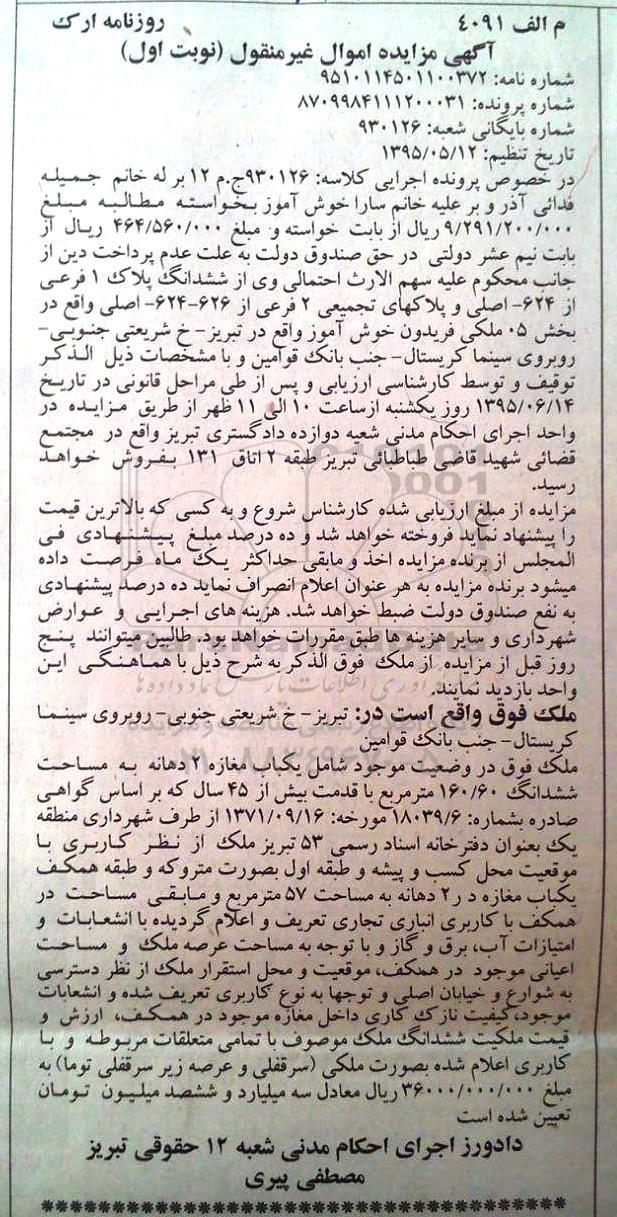 م الف ۴۰۹۱ روزنامه ارک
آگهی مزایده اموال غیرمنقول (نوبت اول)
شماره نامه: ۹۵۱۰۱۱۴۵۰۱۱۰۰۳۷۲
شماره پرونده: ۸۷۰۹۹۸۴۱۱۱۲۰۰۰۳۱
شماره بایگانی شعبه: ۹۳۰۱۲۶
تاریخ تنظیم: ۱۳۹۵/۰۵/۱۲
در خصوص پرونده اجرایی کلاسه: ۹۳۰۱۲۶ج.م ۱۲ بر له خانم جمیله
فدائی آذر و بر علیه خانم سارا خوش آموز بخواسته مطالبه مبلغ
۹/۲۹۱/۲۰۰/۰۰۰ ریال از بابت خواسته و مبلغ ۴۶۴/۵۶۰/۰۰۰ ریال از
بابت نیم عشر دولتی در حق صندوق دولت به علت عدم پرداخت دین از
جانب محکوم علیه سهم الارث احتمالی وی از ششدانگ پلاک ۱ فرعی
از ۶۲۴- اصلی و پلاکهای تجمیعی ۲ فرعی از ۶۲۶-۶۲۴- اصلی واقع در
بخش ۰۵ ملکی فریدون خوش آموز واقع در تبریز- خ شریعتی جنوبی-
روبروی سینما کریستال- جنب بانک قوامین و با مشخصات ذیل الذکر
توقیف و توسط کارشناسی ارزیابی و پس از طی مراحل قانونی در تاریخ
۱۳۹۵/۰۶/۱۴ روز یکشنبه ازساعت ۱۰ الی ۱۱ ظهر از طریق مزایده در
واحد اجرای احکام مدنی شعبه دوازده دادگستری تبریز واقع در مجتمع
قضائی شهید قاضی طباطبائی تبریز طبقه ۲ اتاق ۱۳۱ بفروش خواهد
رسید.
مزایده از مبلغ ارزیابی شده کارشناس شروع و به کسی که بالاترین قیمت
را پیشنهاد نماید فروخته خواهد شد و ده درصد مبلغ پیشنهادی فی
المجلس از برنده مزایده اخذ و مابقی حداکثر یک ماه فرصت داده
میشود برنده مزایده به هر عنوان اعلام انصراف نماید ده درصد پیشنهادی
به نفع صندوق دولت ضبط خواهد شد. هزینه های اجرایی و عوارض
شهرداری و سایر هزینه ها طبق مقررات خواهد بود. طالبین میتوانند پنج
روز قبل از مزایده از ملک فوق الذکر به شرح ذیل با هماهنگی این
واحد بازدید نمایند.
ملک فوق واقع است در: تبریز- خ شریعتی جنوبی- روبروی سینما
کریستال- جنب بانک قوامین
ملک فوق در وضعیت موجود شامل یکباب مغازه ۲ دهانه به مساحت
ششدانگ ۱۶۰/۶۰ مترمربع با قدمت بیش از ۴۵ سال که بر اساس گواهی
صادره بشماره: ۱۸۰۳۹/۶ مورخه: ۱۳۷۱/۰۹/۱۶ از طرف شهرداری منطقه
یک بعنوان دفترخانه اسناد رسمی ۵۳ تبریز ملک از نظر کاربری با
موقعیت محل کسب و پیشه و طبقه اول بصورت متروکه و طبقه همکف
یکباب مغازه د ر۲ دهانه به مساحت ۵۷ مترمربع و مابقی مساحت در
همکف با کاربری انباری تجاری تعریف و اعلام گردیده با انشعابات و
امتیازات آب، برق و گاز و با توجه به مساحت عرصه ملک و مساحت
اعیانی موجود در همکف، موقعیت و محل استقرار ملک از نظر دسترسی
به شوارع و خیابان اصلی و توجها به نوع کاربری تعریف شده و انشعابات
موجود، کیفیت نازک کاری داخل مغازه موجود در همکف، ارزش و
قیمت ملکیت ششدانگ ملک موصوف با تمامی متعلقات مربوطه و با
کاربری اعلام شده بصورت ملکی (سرقفلی و عرصه زیر سرقفلی توما) به
مبلغ ۳۶۰۰۰/۰۰۰/۰۰۰ ریال معادل سه میلیارد و ششصد میلیون تومان
تعیین شده است
دادورز اجرای احکام مدنی شعبه ۱۲ حقوقی تبریز
مصطفی پیری